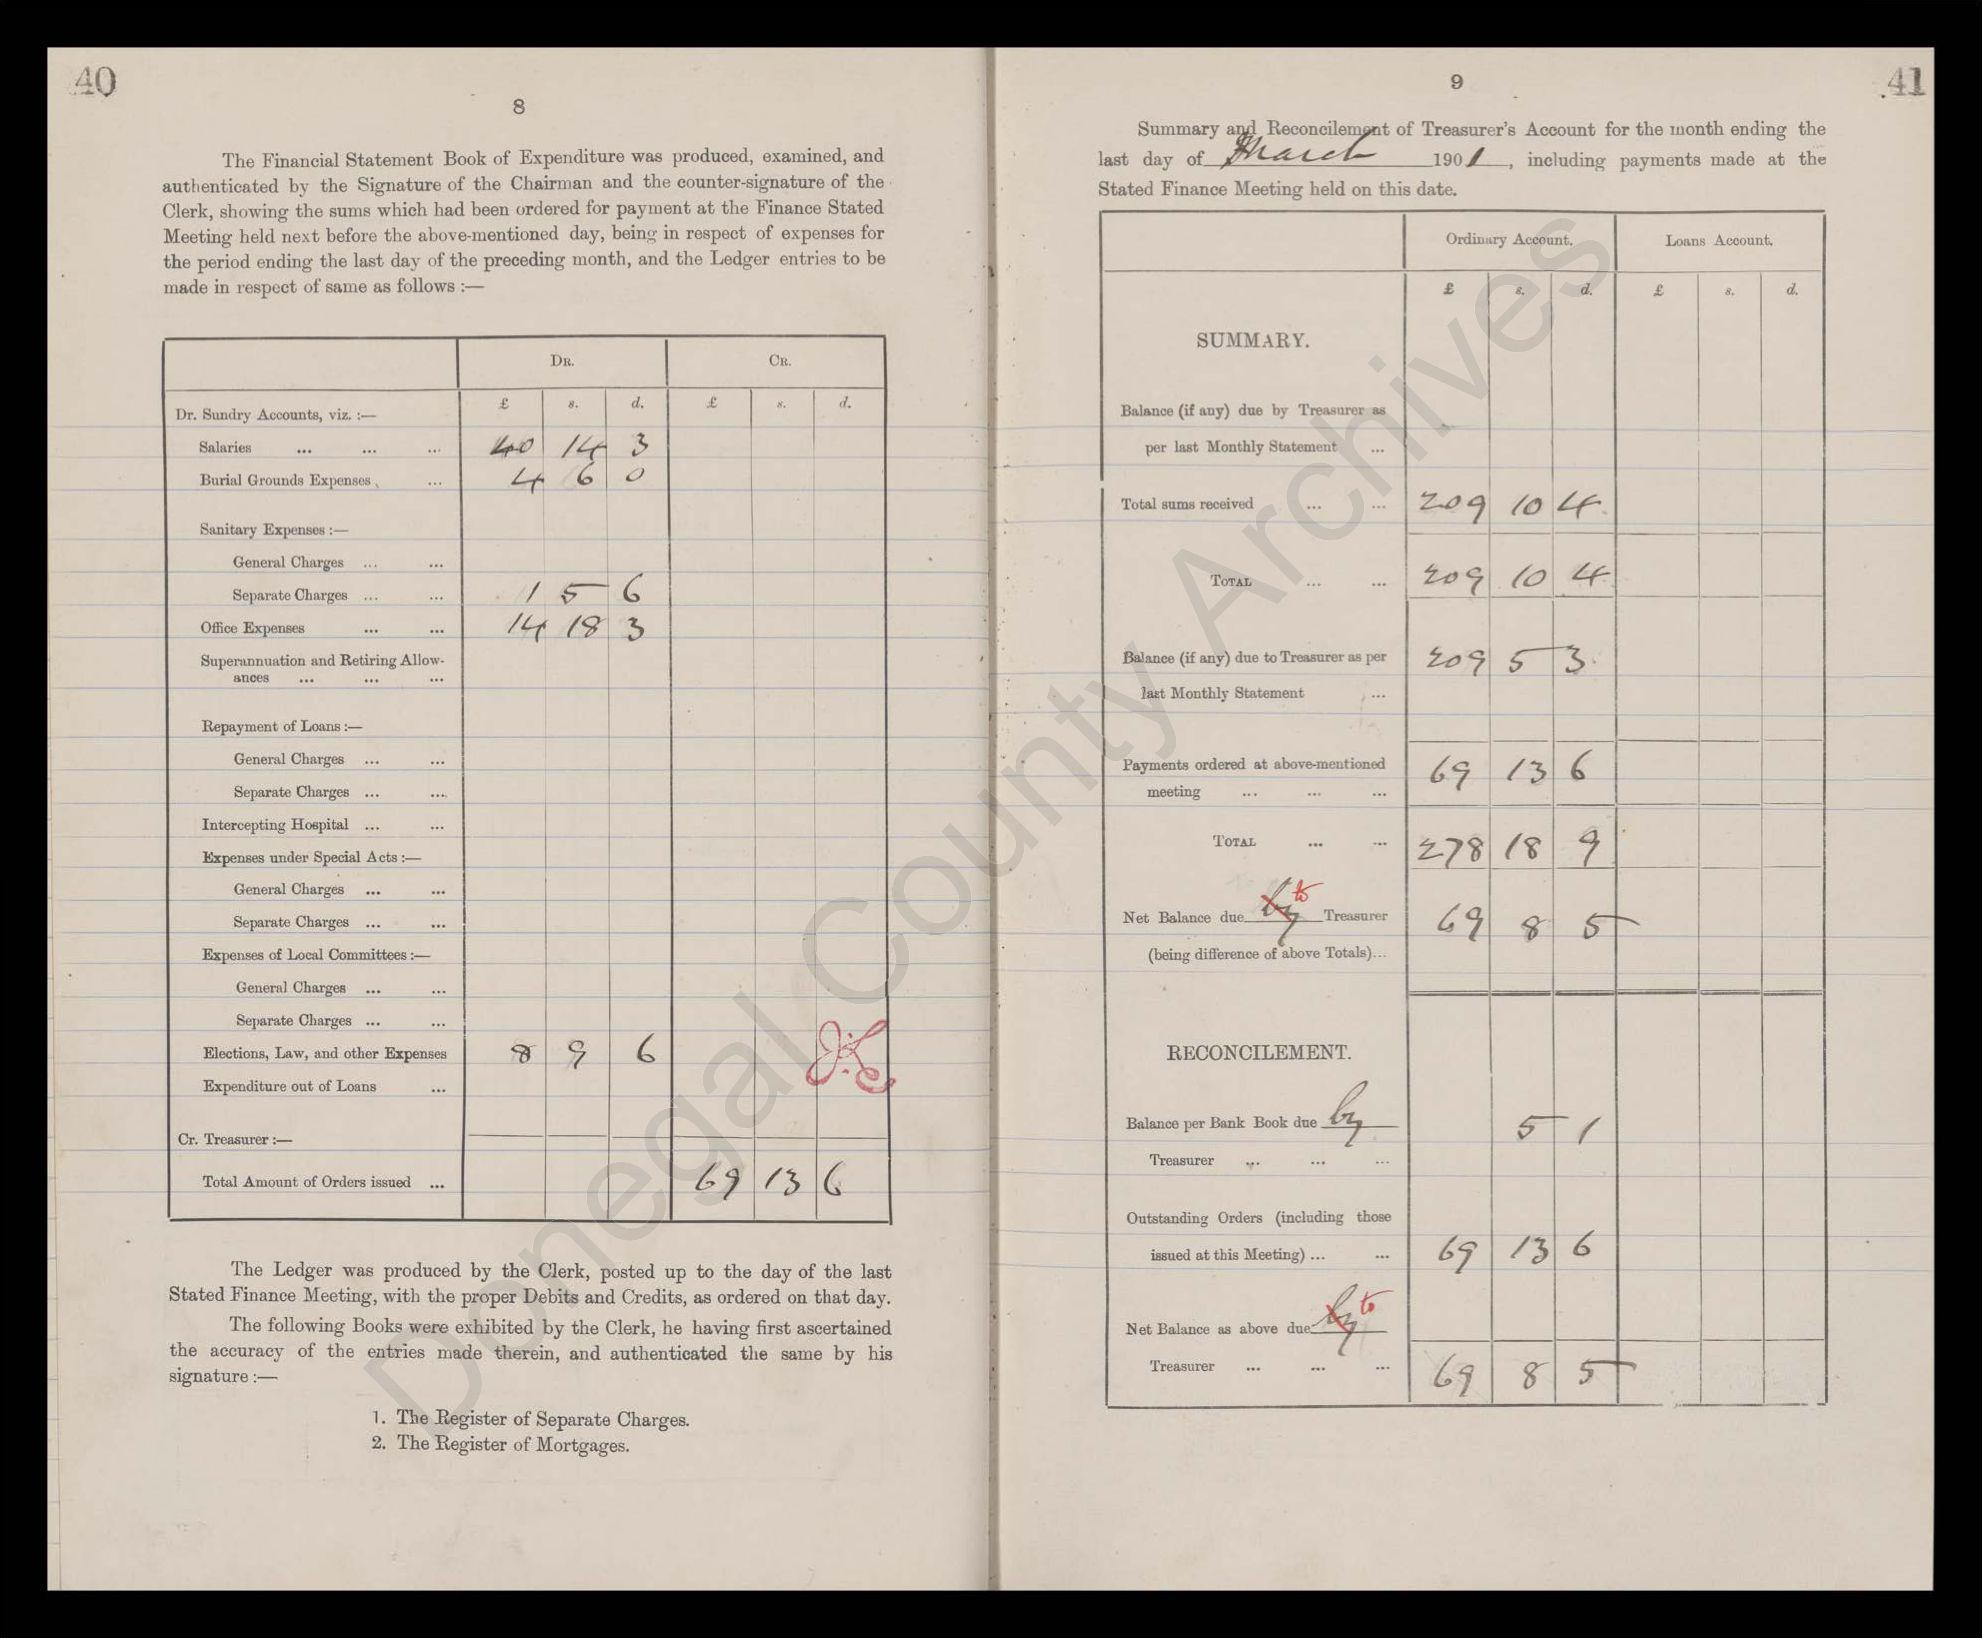 40
8
The Financial Statement Book of Expenditure was produced, examined, and
authenticated by the Signature of the Chairman and the counter-signature of the
Clerk, showing the sums which had been ordered for payment at the Finance Stated
Meeting held next before the above-mentioned day, being in respect of expenses for
the period ending the last day of the preceding month, and the Ledger entries to be
made in respect of same as follows :—
DR. CR.
£ s. d. £ s. d.
Dr. Sundry Accounts, viz. :—
Salaries ... ... ... 40 14 3
Burial Grounds Expenses ... 4 6 0
Sanitary Expenses :—
General Charges ... ...
Separate Charges ... ... 1 5 6
Office Expenses ... ... 14 18 3
Superannuation and Retiring Allow-
ances ... ... ...
Repayment of Loans :—
General Charges ... ...
Separate Charges ... ...
Intercepting Hospital ... ...
Expenses under Special Acts :—
General Charges ... ...
Separate Charges ... ...
Expenses of Local Committees :—
General Charges ... ...
Separate Charges ... ...
Elections, Law, and other Expenses 8 9 6
Expenditure out of Loans ...
Cr. Treasurer :—
Total Amount of Orders issued ... 69 13 6
The Ledger was produced by the Clerk, posted up to the day of the last
Stated Finance Meeting, with the proper Debits and Credits, as ordered on that day.
The following Books were exhibited by the Clerk, he having first ascertained
the accuracy of the entries made therein, and authenticated the same by his
signature :—
1. The Register of Separate Charges.
2. The Register of Mortgages.
41
9
Summary and Reconcilement of Treasurer's Account for the month ending the
last day of March 1901, including payments made at the
Stated Finance Meeting held on this date.
Ordinary Account. Loans Account.
£ s. d. £ s. d.
SUMMARY.
Balance (if any) due by Treasurer as
per last Monthly Statement ...
Total sums received ... ... 209 10 4
TOTAL ... ... 209 10 4
Balance (if any) due to Treasurer as per 209 5 3
last Monthly Statement ...
Payments ordered at above-mentioned 69 13 6
meeting ... ... ...
TOTAL ... ... 278 18 9
Net Balance due by to Treasurer 69 8 5
(being difference of above Totals)...
RECONCILEMENT.
Balance per Bank Book due by 5 1
Treasurer ... ... ...
Outstanding Orders (including those
issued at this Meeting) ... ... 69 13 6
Net Balance as above due by to
Treasurer ... ... ... 69 8 5
Donegal County Archives